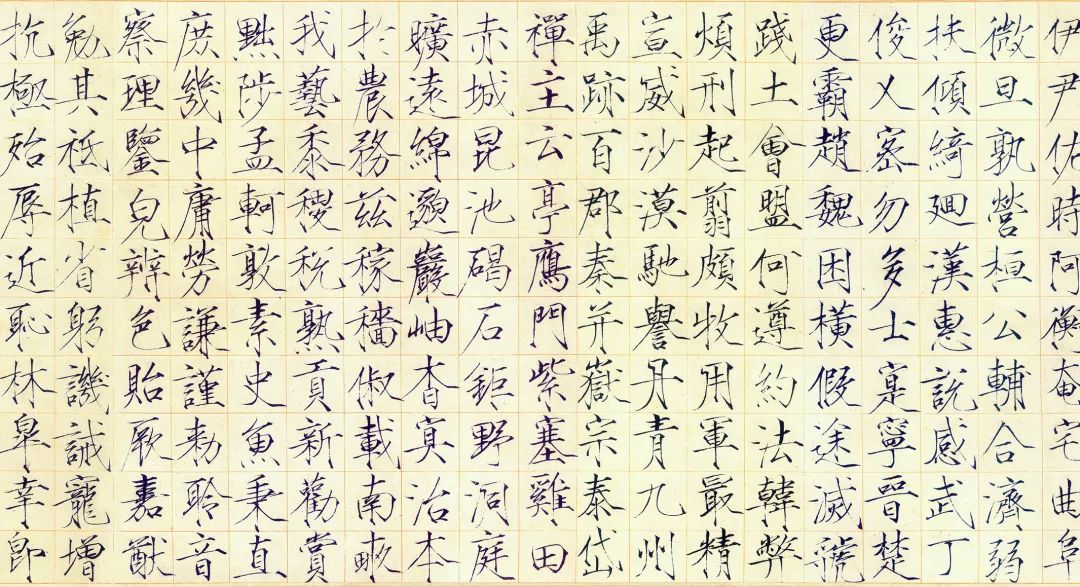 伊尹佑時阿衡奄宅曲阜
微旦孰營桓公輔合濟弱
扶傾綺廻漢惠說感武丁
俊乂密勿多士寔寧晉楚
更霸趙魏困橫假途滅虢
踐土會盟何遵約法韓弊
煩刑起翦頗牧用軍最精
宣威沙漠馳譽丹青九州
禹跡百郡秦并嶽宗泰岱
禪主云亭鷹門紫塞雞田
赤城昆池碣石鉅野洞庭
曠遠綿邈巖岫杳冥治本
於農務茲稼穡俶載南畝
我藝黍稷稅熟貢新勸賞
黜陟孟軻敦素史魚秉直
庶幾中庸勞謙謹勑聆音
察理鑒皃辨色貽厥嘉猷
勉其祗植省躬譏誡寵增
抗極殆辱近恥林皋幸即